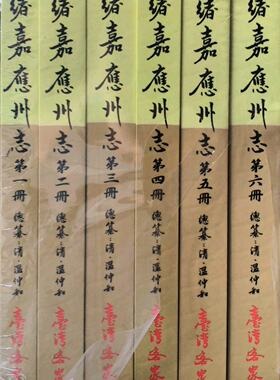 緒嘉應州志 第一冊 總纂：清·溫仲和 臺灣客家
緒嘉應州志 第二冊 總纂：清·溫仲和 臺灣客家
緒嘉應州志 第三冊 總纂：清·溫仲和 臺灣客家
緒嘉應州志 第四冊 總纂：清·溫仲和 臺灣客家
緒嘉應州志 第五冊 總纂：清·溫仲和 臺灣客家
緒嘉應州志 第六冊 總纂：清·溫仲和 臺灣客家